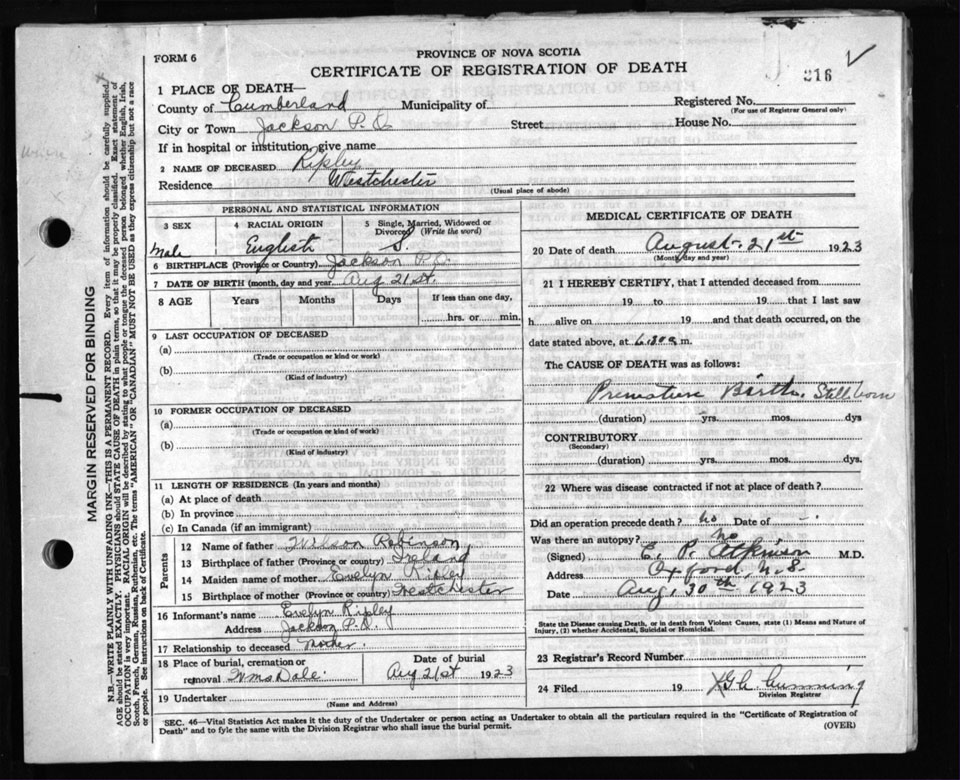 FORM 6
PROVINCE OF NOVA SCOTIA
CERTIFICATE OF REGISTRATION OF DEATH
216
1 PLACE OF DEATH—
County of Cumberland Municipality of
Registered No.
(For use of Registrar General only)
City or Town Jackson P.O. Street House No.
If in hospital or institution, give name
2 NAME OF DECEASED Ripley
Residence Westchester
(Usual place of abode)
PERSONAL AND STATISTICAL INFORMATION
3 SEX Male
4 RACIAL ORIGIN English
5 Single, Married, Widowed or Divorced (Write the word) S.
6 BIRTHPLACE (Province or Country) Jackson P.O.
7 DATE OF BIRTH (month, day and year) Aug 21st.
8 AGE Years Months Days If less than one day, hrs. or min.
9 LAST OCCUPATION OF DECEASED
(a)
(Trade or occupation or kind or work)
(b)
(Kind of industry)
10 FORMER OCCUPATION OF DECEASED
(a)
(Trade or occupation or kind of work)
(b)
(Kind of industry)
11 LENGTH OF RESIDENCE (In years and months)
(a) At place of death
(b) In province
(c) In Canada (if an immigrant)
Parents
12 Name of father Wilson Robinson
13 Birthplace of father (Province or country) Ireland
14 Maiden name of mother Evelyn Ripley
15 Birthplace of mother (Province or country) Westchester
16 Informant's name Evelyn Ripley
Address Jackson P.O.
17 Relationship to deceased Mother
18 Place of burial, cremation or removal Wms Dale
Date of burial Aug 21st 1923
19 Undertaker
(Name and Address)
MEDICAL CERTIFICATE OF DEATH
20 Date of death August 21st 1923
(Month, day and year)
21 I HEREBY CERTIFY, that I attended deceased from
19 to 19 that I last saw
h alive on 19 and that death occurred, on
date stated above, at m.
The CAUSE OF DEATH was as follows:
Premature Birth. Stillborn
(duration) yrs. mos. dys
CONTRIBUTORY
(Secondary)
(duration) yrs. mos. dys.
22 Where was disease contracted if not at place of death?
Did an operation precede death? No Date of -
Was there an autopsy? No
(Signed) E. P. Atkinson M.D.
Address Oxford, N.S.
Date Aug, 30th 1923
State the Disease causing Death, or in death from Violent Causes, state (1) Means and Nature of
Injury, (2) whether Accidental, Suicidal or Homicidal.
23 Registrar's Record Number
24 Filed 19 Cumming
Division Registrar
"SEC. 46—Vital Statistics Act makes it the duty of the Undertaker or person acting as Undertaker to obtain all the particulars required in the "Certificate of Registration of
Death" and to fyle the same with the Division Registrar who shall issue the burial permit. (OVER)
MARGIN RESERVED FOR BINDING
N.B.—WRITE PLAINLY WITH UNFADING INK—THIS IS A PERMANENT RECORD. Every item of information should be carefully supplied.
AGE should be stated EXACTLY. PHYSICIANS should STATE CAUSE OF DEATH in plain terms, so that it may be properly classified. Exact statement of
OCCUPATION is very important. RACIAL ORIGIN will be described by stating to what people or tongue the deceased person belonged whether English, Irish,
Scotch, French, German, Russian, Ruthenian, etc. The terms "AMERICAN" OR "CANADIAN" MUST NOT BE USED as they express citizenship but not a race
or people. See instructions on back of Certificate.